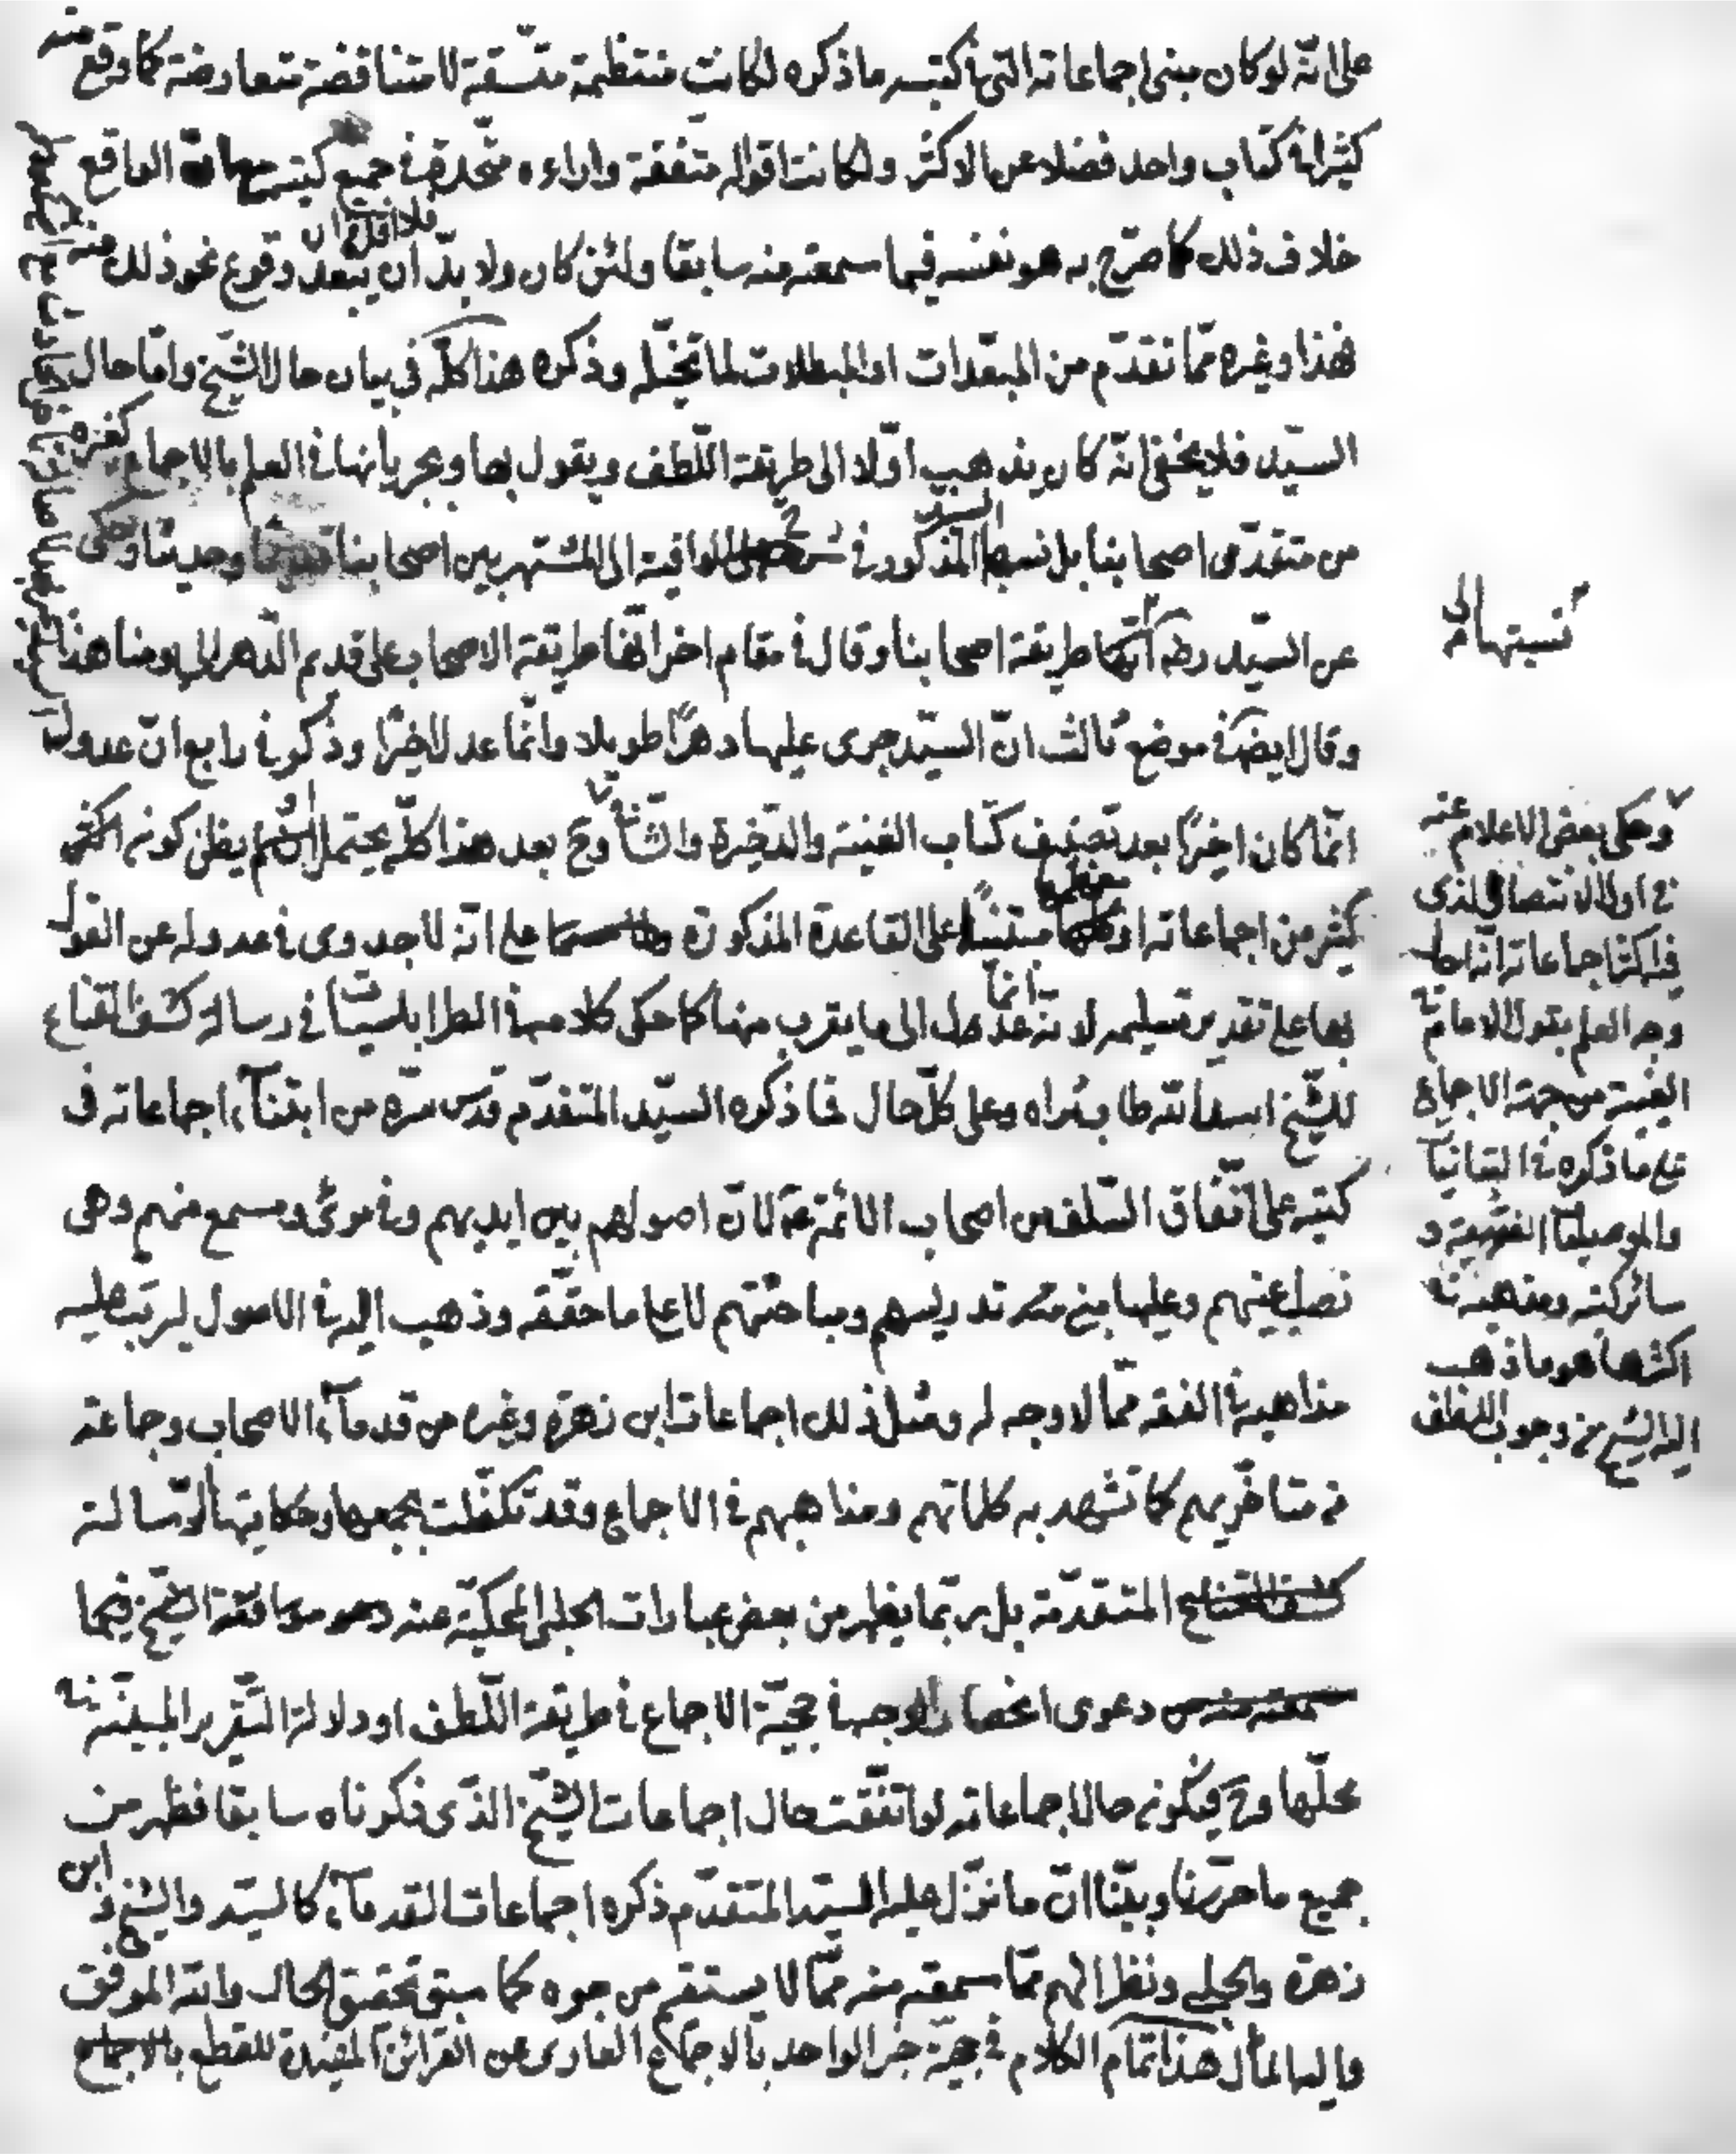 على انّه لو كان مبنى اجماعاته التى فى كتبه ما ذكره لكانت منتظمة متّسقة لا متناقضة متعارضة كما وقع منه
كثيرا فى كتاب واحد فضلا عن الاكثر ولكانت اقواله متفقة واراءه متّحدة فى جميع كتبه الواقع
خلاف ذلك كما صرّح به هو نفسه فيما سمعته منه سابقا ولئن كان ولا بدّ فلا اقلّ من ان يبعد وقوع نحو ذلك منه
فهذا وغيره ممّا تقدّم من المبعّدات او المبطلات لما تخيّله وذكره هذا كلّه فى بيان حال الشيخ وامّا حال
السيّد فلا يخفى انّه كان يذهب اوّلا الى طريقة اللّطف ويقول بها وبجريانها فى العلم بالاجماع كغيره
من متقدّمى اصحابنا بل نسبها السيّد المذكور فى شرح الوافية الى المشتهر بين اصحابنا قديمًا وحديثا وحكى
عن السيّد ره انّها طريقة اصحابنا وقال فى مقام اخر انّها طريقة الاصحاب على قديم الدّهر الى يومنا هذا
وقال ايضا فى موضع ثالث انّ السيّد جرى عليها دهرًا طويلا وانّما عدل اخيرًا وذكر فى رابع انّ عدوله
انّما كان اخيرًا بعد تصنيف كتاب الغنية والذّخيرة والشّافى وح بعد هذا كلّه يحتمل او يظن كون اكثر
كثير من اجماعاته او بعضها مبتنيا على القاعدة المذكورة على انّه لا جدوى فى عدوله عن القول
بها على تقدير تسليمه لانّه انّما عدل الى ما يقرب منها كما حكى كلامه فى الطرابلسيّات فى رسالة كشف القناع
للشّيخ اسد الله طاب ثراه وعلى كلّ حال فما ذكره السيّد المتقدّم قدس سرّه من ابتنآء اجماعاته فى
كتبه على اتّفاق السّلف من اصحاب الائمّة ع لانّ اصولهم بين ايديهم وفى مرئى ومسمع منهم وهى
نصب اعينهم وعليها مبنى تدريسهم ومباحثتهم لا على ما حقّقه وذهب اليه فى الاصول ليرتب عليه
مذاهبه فى الفقه ممّا لا وجه له ومثل ذلك اجماعات ابن زهرة وغيره من قدمآء الاصحاب وجماعة
من متاخّريهم كما تشهد به كلماتهم ومذاهبهم فى الاجماع وقد تكفّلت بجمعها وحكايتها الرّسالة
كشف القناع المتقدّمة بل ربّما يظهر من بعض عبارات الحلى المحكيّة عنه دعوى موافقة الشّيخ فيما
سمعته منه من دعوى انحصار الوجه فى حجيّة الاجماع فى طريقة اللّطف او دلالة التّقرير المبيّنة فى
محلّها وح فيكون حال اجماعاته لو اتّفقت حال اجماعات الشّيخ الذّى ذكرناه سابقا فظهر من
جميع ما حرّرنا وبيّنا انّ ما نزّل عليه السيّد المتقدّم ذكره اجماعات القدمآء كالسيّد والشيخ وابن
زهرة والحلى ونظرائهم ممّا سمعته منه ممّا لا يستقيم من وجوه كما سبق تحقيق الحال والله الموفّق
واليه المآل هذا تمام الكلام فى حجيّة خبر الواحد بالاجماع العارى عن القرائن المفيدة للقطع بالاجماع
نسبتها الى
وحكى بعض الاعلام عنه
فى اول الانتصار الذى
فيه اكثر اجماعاته انه احال
وجه العلم بقول الامام فى
الغيبة من جهة الاجماع
على ما ذكره فى التبانيات
والموصليات الفقهية و
سائر كتبه ومذهبه فى
اكثرها هو ما ذهب
اليه الشيخ من وجوب اللطف